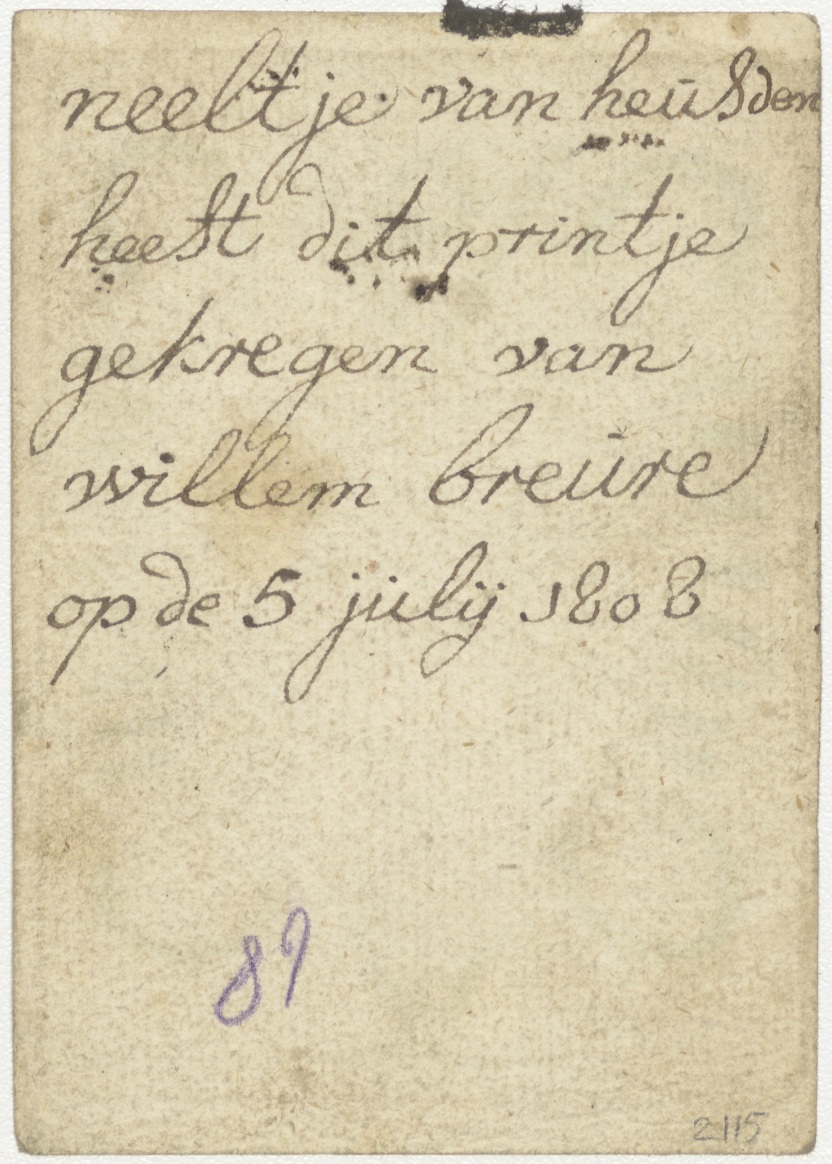 neeltje van heusden
heeft dit printje
gekregen van
willem breure
op de 5 julij 1808
89
2115